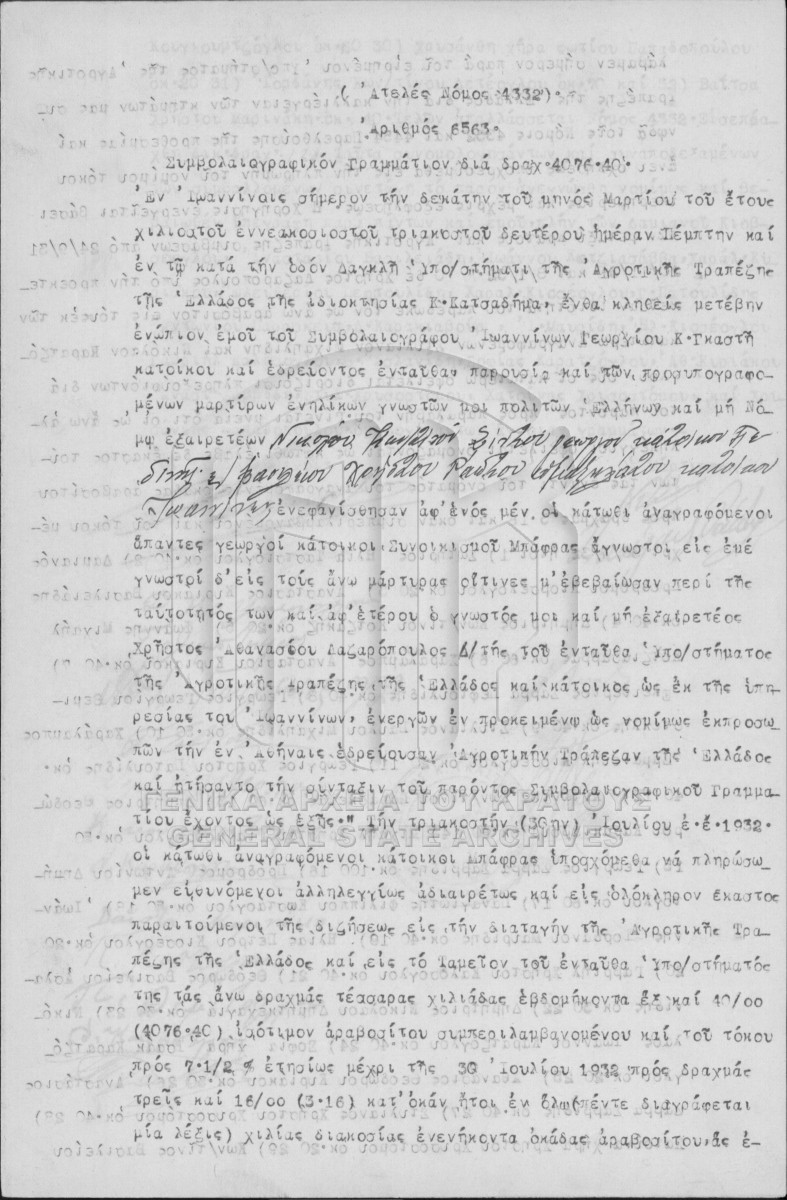 ( Ἀτελές Νόμος 4332).
Ἀριθμός 6563.
Συμβολαιογραφικόν Γραμμάτιον διά δραχ.4076.40.
Ἐν Ἰωαννίνοις σήμερον τήν δεκάτην τοῦ μηνός Μαρτίου τοῦ ἔτους
χιλιοστοῦ ἐννεακοσιοστοῦ τριακοστοῦ δευτέρου ἡμέραν Πέμπτην καί
ἐν τῷ κατά τήν ὁδόν Δαγκλῆ Ὑπο/στήματι τῆς Ἀγροτικῆς Τραπέζης
τῆς Ἑλλάδος τῆς ἰδιοκτησίας Κ.Κατσαδήμα, ἔνθα κληθείς μετέβην
ἐνώπιον ἐμοῦ τοῦ Συμβολαιογράφου Ἰωαννίνων Γεωργίου Κ.Γκαστῆ
κατοίκου καί ἑδρεύοντος ἐνταῦθα, παρουσίᾳ καί τῶν προσυπογραφο-
μένων μαρτύρων ἐνηλίκων γνωστῶν μοι πολιτῶν Ἑλλήνων καί μή Νό-
μῳ ἐξαιρετέων Νικολάου γεωργοῦ κατοίκου
Χρήστου κατοίκου
Ἰωαννίνων ἐνεφανίσθησαν ἀφ'ἑνός μέν οἱ κάτωθι ἀναγραφόμενοι
ἅπαντες γεωργοί κάτοικοι Συνοικισμοῦ Μπάφρας ἄγνωστοι εἰς ἐμέ
γνωστοί δ'εἰς τούς ἄνω μάρτυρας οἵτινες μ'ἐβεβαίωσαν περί τῆς
ταὐτοτητός των καί ἀφ'ἑτέρου ὁ γνωστός μοι καί μή ἐξαιρετέος
Χρῆστος Ἀθανασίου Λαζαρόπουλος Δ/τής τοῦ ἐνταῦθα Ὑπο/στήματος
τῆς Ἀγροτικῆς Τραπέζης τῆς Ἑλλάδος καί κάτοικος ὡς ἐκ τῆς ὑπη-
ρεσίας του Ἰωαννίνων, ἐνεργῶν ἐν προκειμένῳ ὡς νομίμως ἐκπροσω-
πῶν τήν ἐν Ἀθήναις ἑδρεύουσαν Ἀγροτικήν Τράπεζαν τῆς Ἑλλάδος
καί ᾐτήσαντο τήν σύνταξιν τοῦ παρόντος Συμβολαιογραφικοῦ Γραμμα-
τίου ἔχοντος ὡς ἑξῆς." Τήν τριακοστήν (30ην) Ἰουλίου ἐ.ἔ.1932.
οἱ κάτωθι ἀναγραφόμενοι κάτοικοι Μπάφρας ὑποσχόμεθα νά πληρώσω-
μεν εὐθυνόμενοι ἀλληλεγγύως ἀδιαιρέτως καί εἰς ὁλόκληρον ἕκαστος
παραιτούμενοι τῆς διζήσεως εἰς τήν διαταγήν τῆς Ἀγροτικῆς Τρα-
πέζης τῆς Ἑλλάδος καί εἰς τό Ταμεῖον τοῦ ἐνταῦθα Ὑπο/στήματός
της τάς ἄνω δραχμάς τέσσαρας χιλιάδας ἑβδομήκοντα ἕξ καί 40/οο
(4076.40) ἰσότιμον ἀραβοσίτου συμπεριλαμβανομένου καί τοῦ τόκου
πρός 7.1/2 % ἐτησίως μέχρι τῆς 30 Ἰουλίου 1932 πρός δραχμάς
τρεῖς καί 16/οο (3.16) κατ'ὀκᾶν ἤτοι ἐν ὅλῳ(πέντε διαγράφεται
μία λέξις) χιλίας διακοσίας ἐνενήκοντα ὀκάδας ἀραβοσίτου,ἅς ἐ-
ΓΕΝΙΚΑ ΑΡΧΕΙΑ ΤΟΥ ΚΡΑΤΟΥΣ
GENERAL STATE ARCHIVES